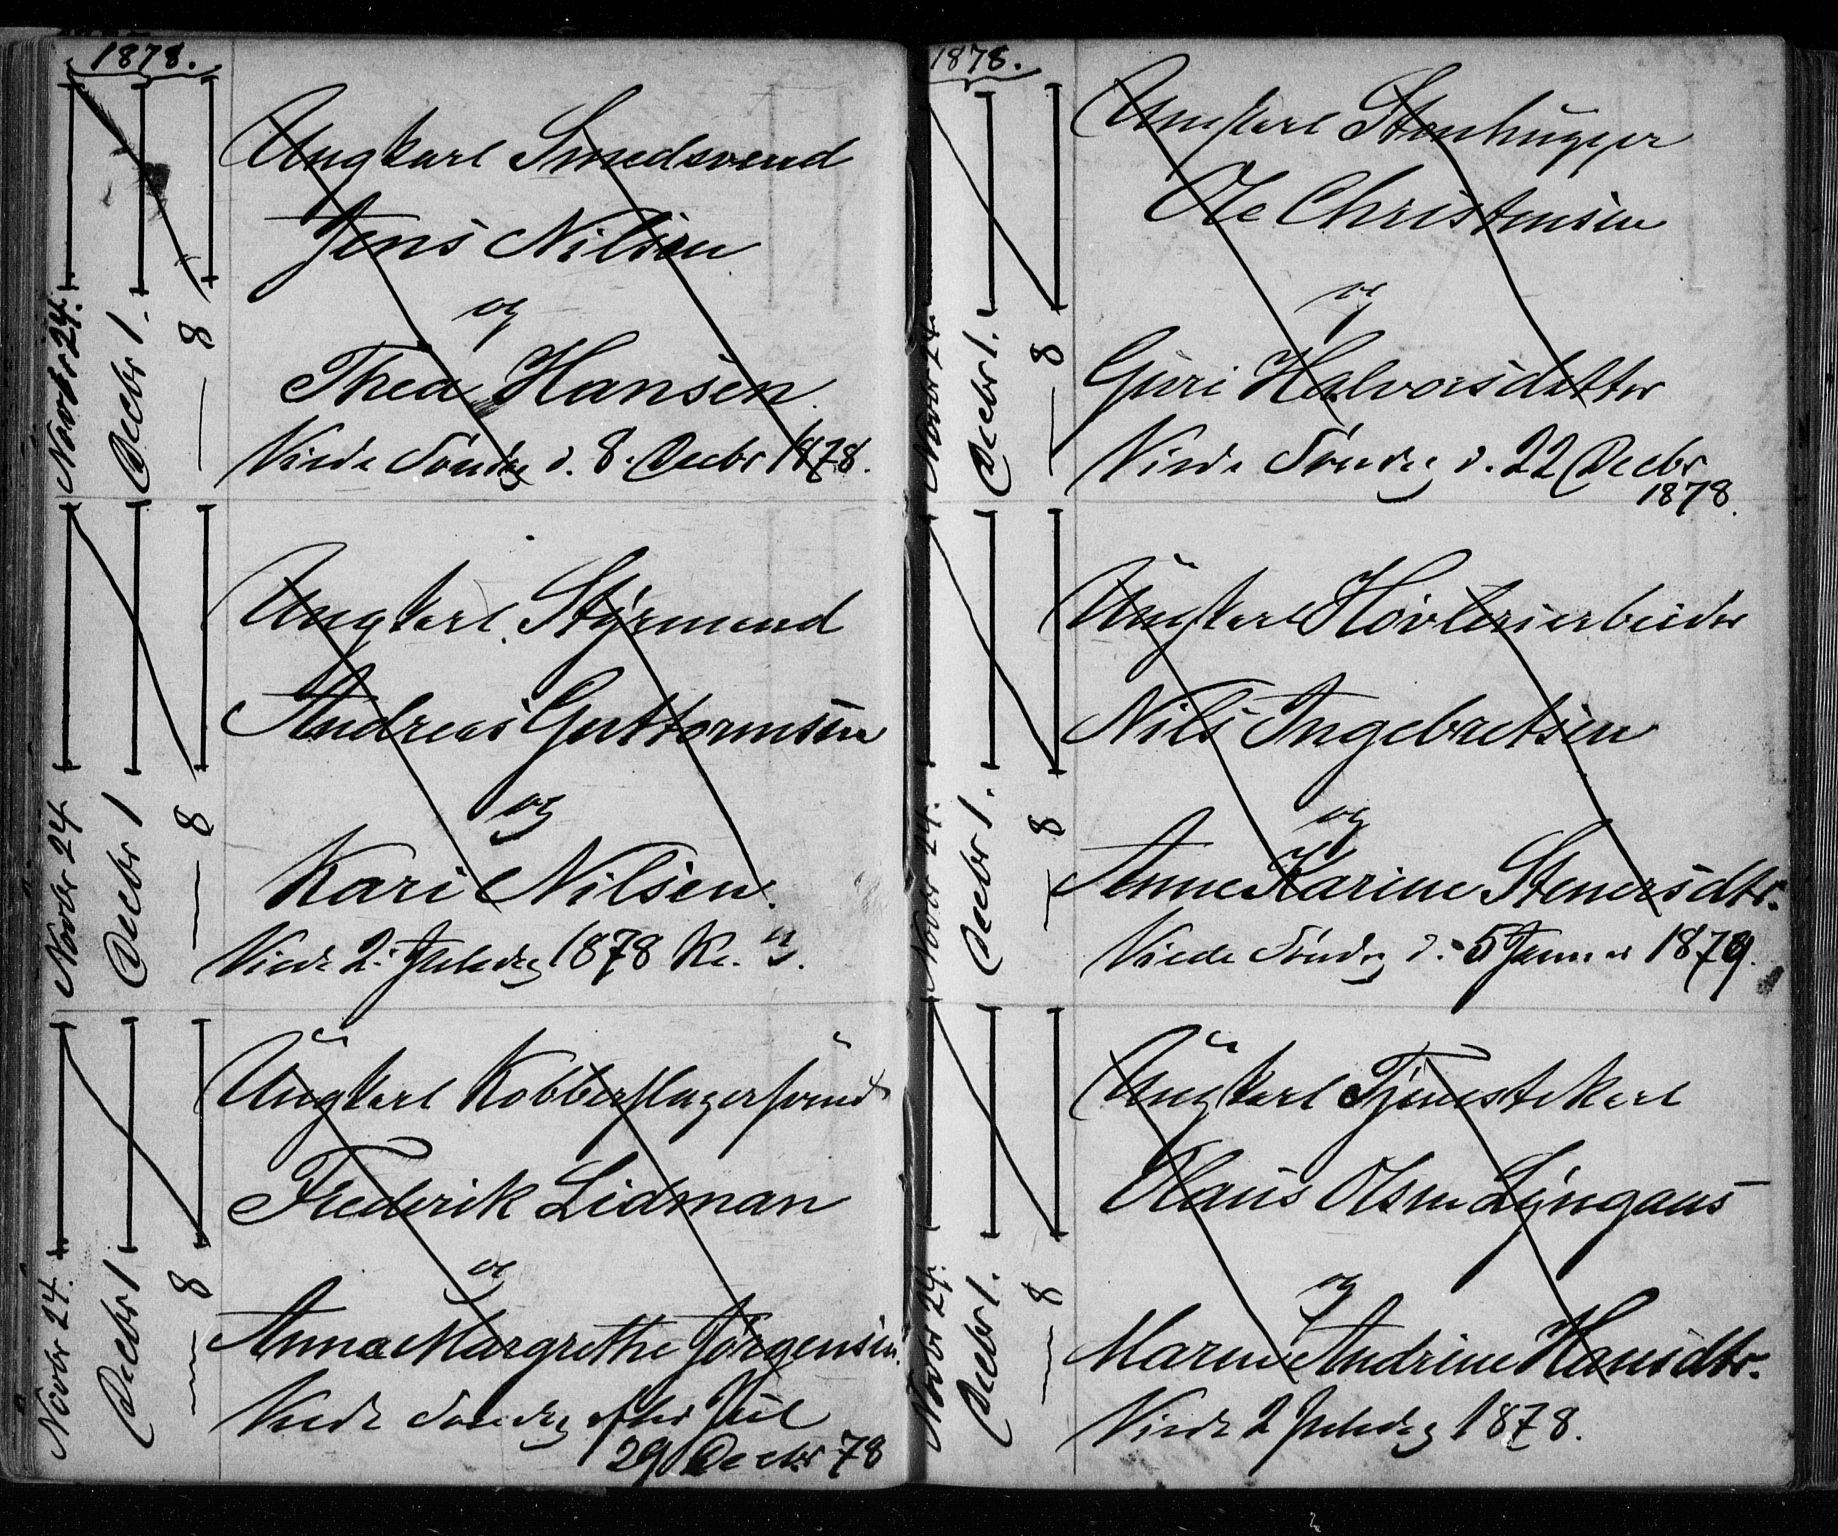 1878.
Novbr 24.
Decbr 1.
— 8
Ungkarl Smedsvend
Jens Nilsen
og
Thea Hansen.
Viede Søndag d. 8. Decbr 1878.
Novbr 24
Decbr 1
— 8
Ungkarl Styrmand
Andreas Guttormsen
og
Kari Nilsen.
Viede 2. Juledag 1878 Kl.
Novbr 24.
Decbr 1
— 8
Ungkarl Kobberslagersvend
Frederik Lidman
og
Anna Margrethe Jørgensen.
Viede Søndag efter Jul
29 Decbr 78
1878.
Novbr 24.
Decbr 1.
— 8
Ungkarl Stenhugger
Ole Christensen
og
Guri Halvorsdatter
Viede Søndag d. 22 Decbr
1878.
Novbr 24.
Decbr 1.
— 8
Ungkarl Høvleriarbeider
Nils Ingebretsen
og
Anne Karine Stenersdtr.
Viede Søndag d. 5 Januar 1879.
Novbr 24.
Decbr 1.
— 8
Ungkarl Tjenestekarl
Claus Olsen Lyngaas
og
Maren Andrine Hansdtr.
Viede 2 Juledag 1878.